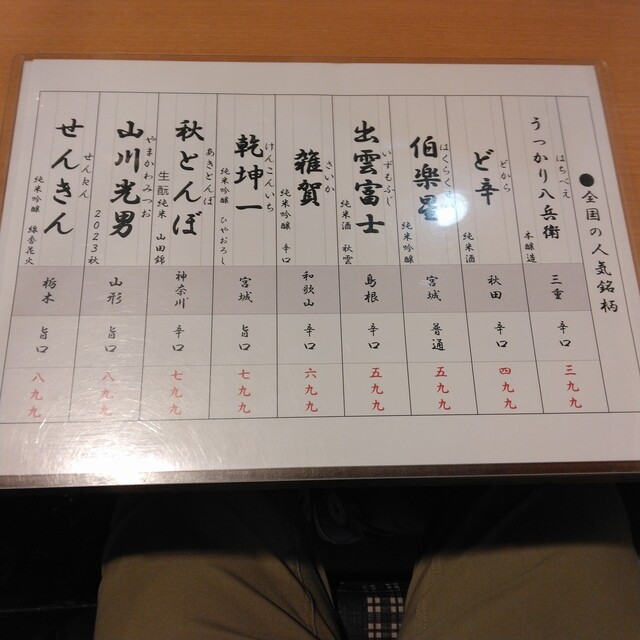 ●全国の人気銘柄
うっかり八兵衛
はちべえ
本醸造
三重
辛口
三九九
ど辛
どから
純米酒
秋田
辛口
四九九
伯楽星
純米吟醸
宮城
普通
五九九
出雲富士
いずもふじ
純米酒 秋雲
島根
辛口
五九九
雑賀
さいか
純米吟醸 辛口
和歌山
辛口
六九九
乾坤一
けんこんいち
純米吟醸 ひやおろし
宮城
旨口
七九九
秋とんぼ
あきとんぼ
生酛純米 山田錦
神奈川
辛口
七九九
山川光男
やまかわみつお
2023秋
山形
旨口
八九九
せんきん
せんきん
純米吟醸 線香花火
栃木
旨口
八九九